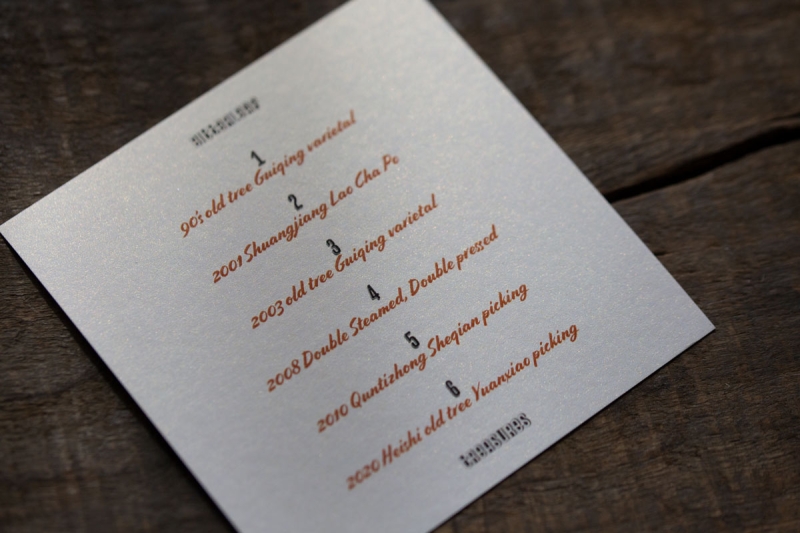 1
90's old tree Guiqing varietal
2
2001 Shuangjiang Lao Cha Po
3
2003 old tree Guiqing varietal
4
2008 Double Steamed, Double pressed
5
2010 Quntizhong Sheqian picking
6
2020 Heishi old tree Yuanxiao picking